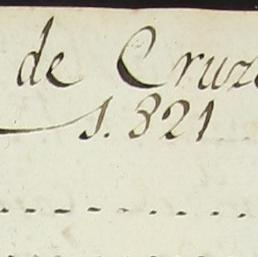 de Cruz
1.821